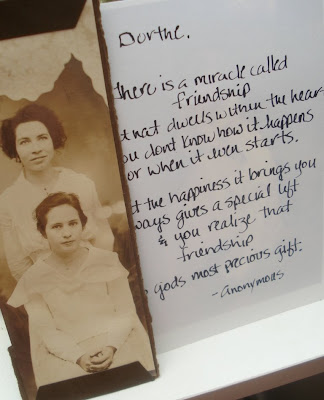 Dorthe.
there is a miracle called
friendship
that dwells within the hear
you dont know how it happens
or when it even starts.
t the happiness it brings you
ways gives a special lift
& you realize that
friendship
gods most precious gift.
-anonymous